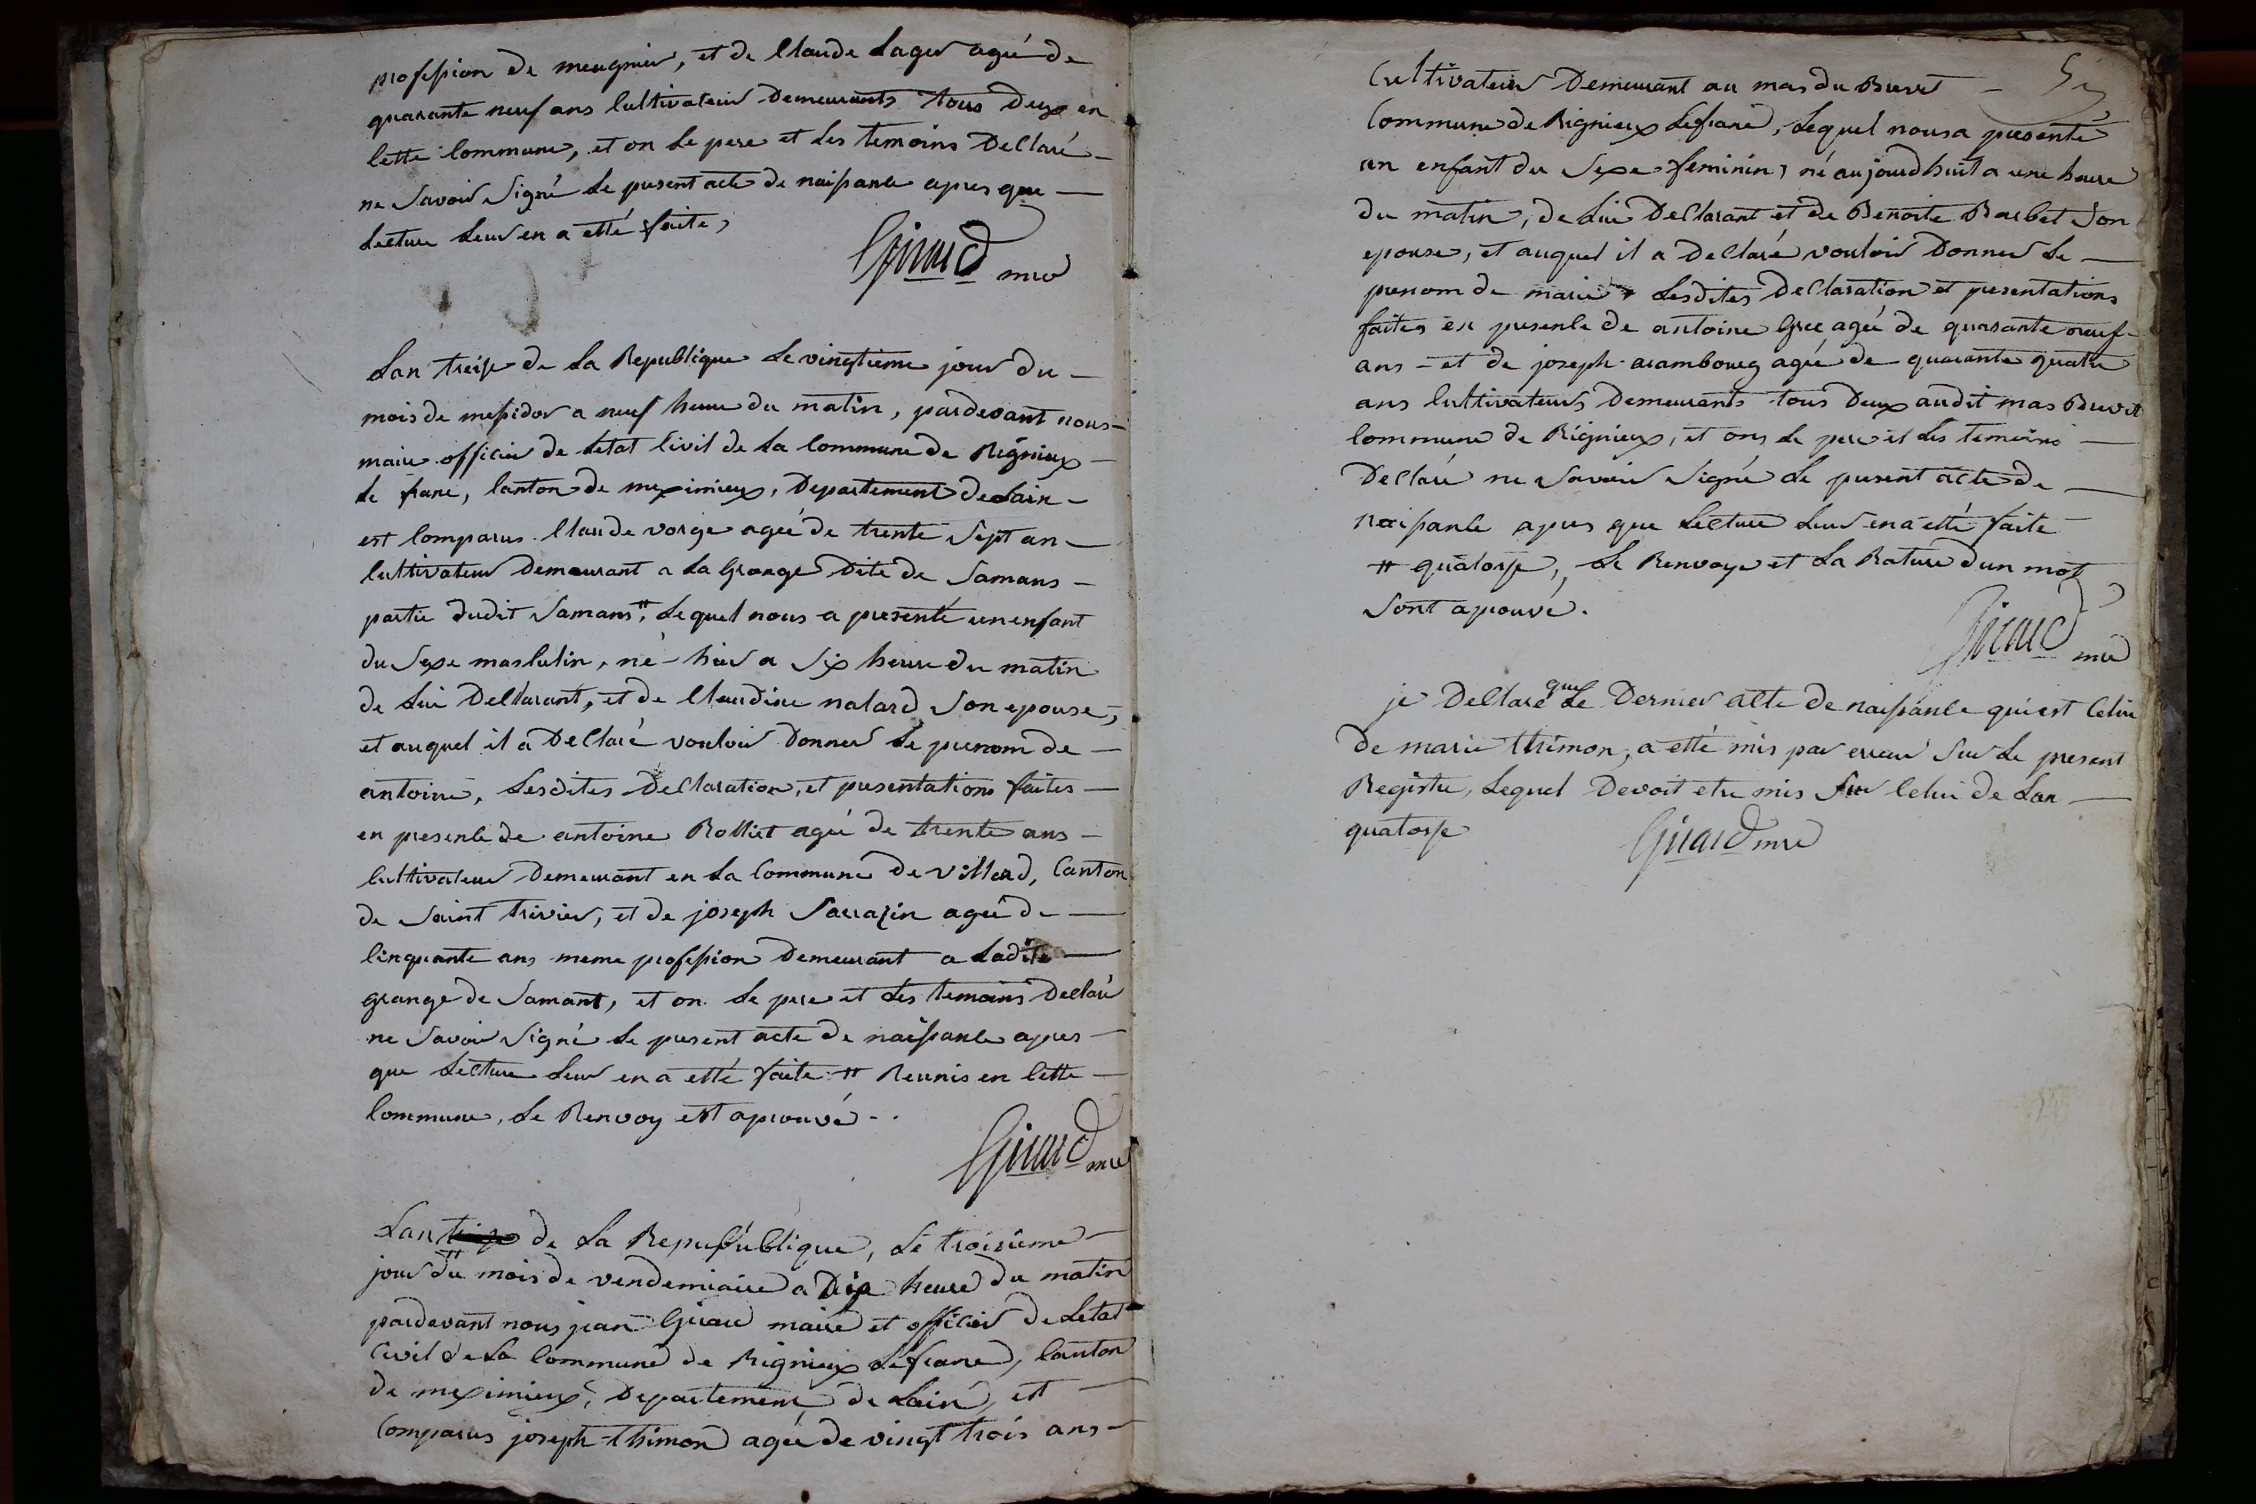 profession de meugnier, et de Claude Lager agé de
quarante neuf ans Cultivateur Demeurants tous Deux en
Cette Commune, et on Le pere et Les temoins Declaré
ne Savoir Signé Le present acte de naissance apres que
Lecture Leur en a etté faite,
Girard mre
Lan treise de La Republique Le vingtieme jour du
mois de messidor a neuf heure du matin, pardevant nous
maire officier de Letat Civil de La Commune de Rignieux
Le franc, Canton de meximieux, Departement de Lain
est Comparus Claude vorge agé de trente Sept an
Cultivateur Demeurant a La Grange Dite de Samans
partie dudit Samans ", Lequel nous a presenté un enfant
du Sexe masculin, né hier a Six heure du matin
de Lui Declarant, et de Claudine nalard Son epouse,
et auquel il a Declaré vouloir Donner Le prenom de
antoine, Lesdites Declaration, et presentations faites
en presence de antoine Rolliet agé de trente ans
Cultivateur Demeurant en La Commune de villard, Canton
de Saint trivier, et de joseph Sarrazin agé de
Cinquante ans meme profession Demeurant a Ladite
grange de Samant, et on Le pere et Les temoins Declaré
ne Savoir Signé Le present acte de naissance apres
que Lecture Leur en a etté faite " Reunis en Cette
Commune, Le Renvoy est aprouvé.
Girard mre
Lan treize de La Republique, Le troisieme
jour du mois de vendemiaire a Dix heure du matin
pardevant nous jean Girard maire et officier de Letat
Civil de La Commune de Rignieux Lefranc, Canton
de meximieux, Departement de Lain, est
Comparus joseph thimon agé de vingt trois ans
Cultivateur Demeurant au mas du Buvet
Commune de Rignieux Lefranc, Lequel nous a presenté
un enfant du Sexe feminin, né aujourdhuit a une heure
du matin, de Lui Declarant et de Benoite Barbet Son
epouse, et auquel il a Declaré vouloir Donner Le
prenom de marie Lesdites Declaration et presentations
faites en presence de antoine Gree agé de quarante neuf
ans et de joseph arambourg agé de quarante quatre
ans Cultivateurs Demeurants tous Deux audit mas Buvet
Commune de Rignieux, et ons Le pere et Les temoins
Declaré ne Savoir Signé Le present acte de
naissance apres que Lecture Leur en a etté faite
" quatorse, Le Renvoye et La Rature dun mot
Sont aprouvé.
Girard mre
je Declare que Le Dernier acte de naissance qui est Celui
de marie thimon, a etté mis par erreur Sur Le present
Registre, Lequel Devoit etre mis Sur Celui de Lan
quatorse Girard mre